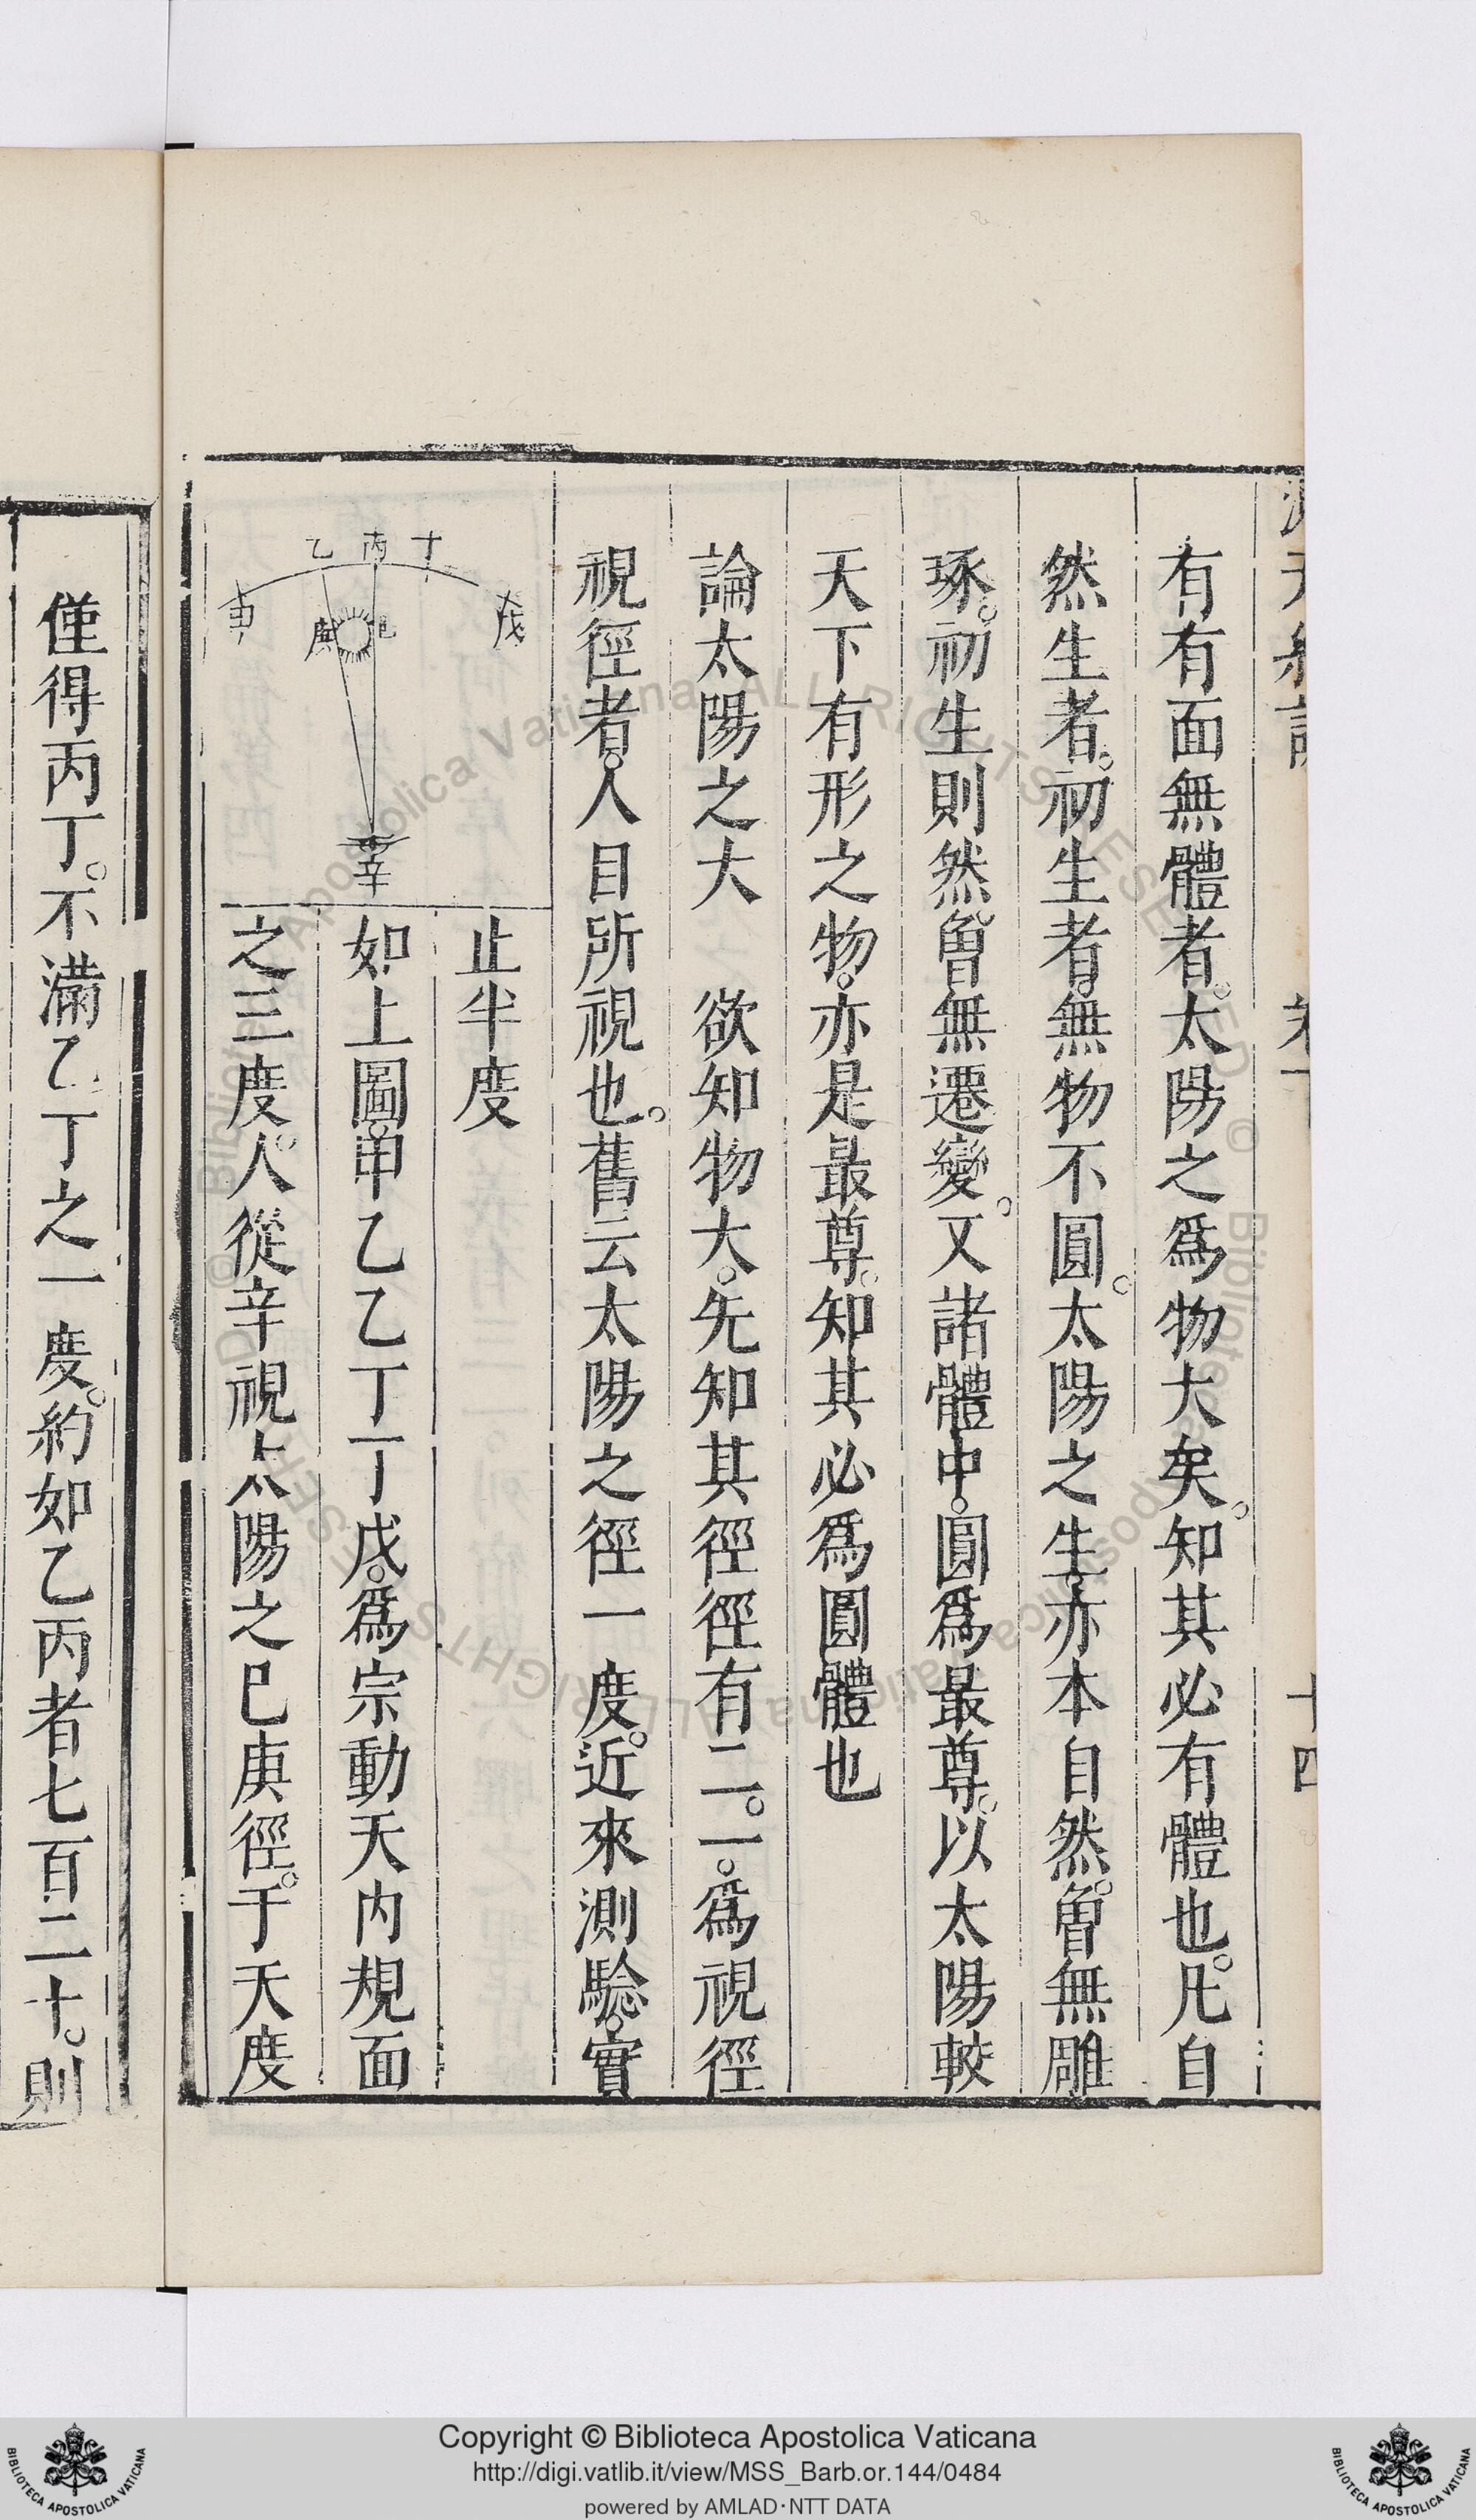 有有面無體者。太陽之爲物大矣。知其必有體也。凡自
然生者。初生者。無物不圓。太陽之生。亦本自然。曾無雕
琢。初生則然。曾無遷變。又諸體中。圓爲最尊。以太陽較
天下有形之物。亦是最尊。知其必爲圓體也
論太陽之大　欲知物大。先知其徑徑有二。一。爲視徑
視徑者。人目所視也。舊云太陽之徑一度。近來測驗。實
止半度
如上圖。甲乙乙丁丁戊。爲宗動天内規面
之三度。人從辛視太陽之巳庚徑。于天度
丁
丙
乙
戊
甲
巳
庚
辛
十四
僅得丙丁。不滿乙丁之一度。約如乙丙者七百二十。則
Copyright © Biblioteca Apostolica Vaticana
http://digi.vatlib.it/view/MSS_Barb.or.144/0484
powered by AMLAD·NTT DATA
BIBLIOTECA APOSTOLICA VATICANA
BIBLIOTECA APOSTOLICA VATICANA